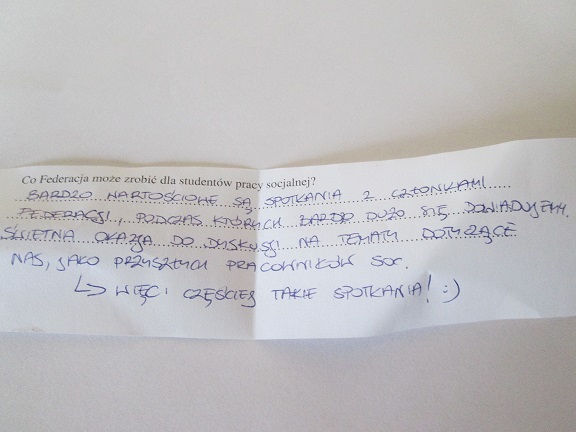 Co Federacja może zrobić dla studentów pracy socjalnej?
BARDZO WARTOŚCIOWE SĄ SPOTKANIA Z CZŁONKAMI
FEDERACJI, PODCZAS KTÓRYCH BARDZO DUŻO SIĘ DOWIADUJEMY.
ŚWIETNA OKAZJA DO DYSKUSJI NA TEMATY DOTYCZĄCE
NAS, JAKO PRZYSZŁYCH PRACOWNIKÓW SOC.
↳ WIĘCEJ CZĘŚCIEJ TAKIE SPOTKANIA! :)